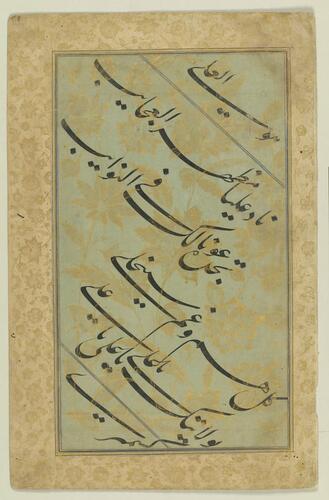 هو العلی
ناد علیا مظهر العجایب
تجده عونا لک فی النوایب
کل هم و غم سینجلی
بولایتک یا علی یا علی یا علی